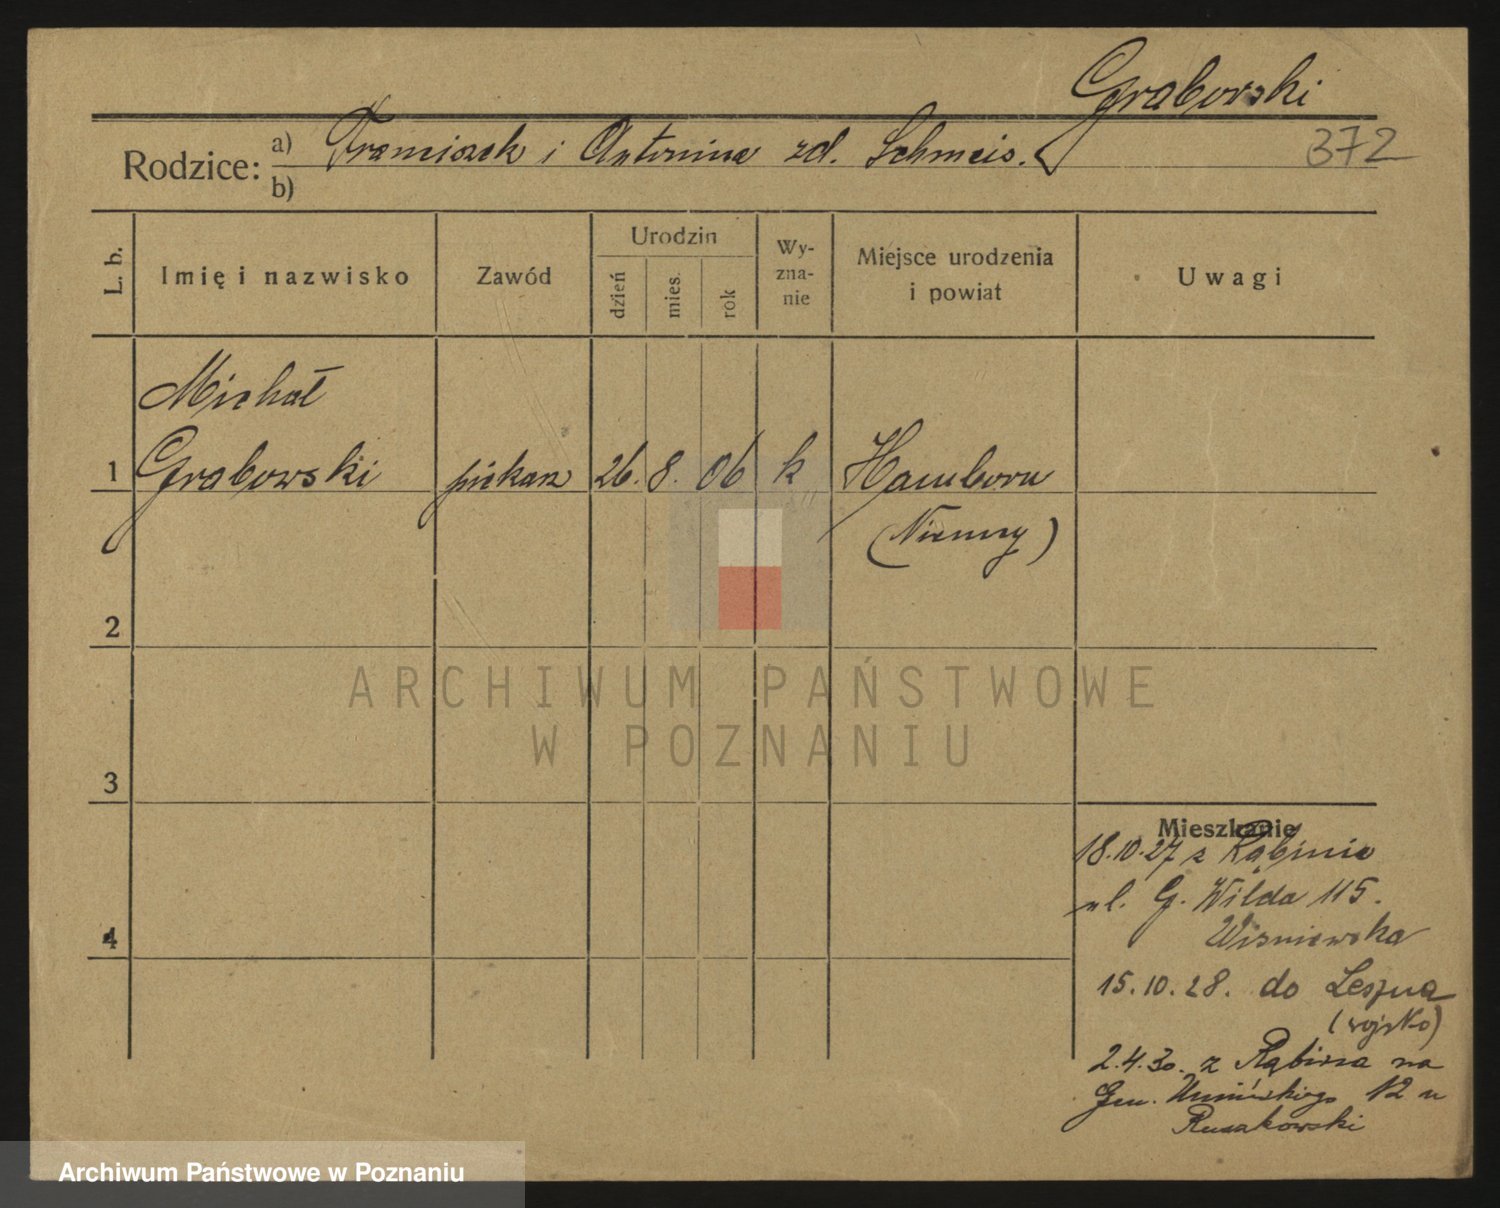 Grabowski
372
Rodzice: a) Franciszek i Antonina zd. Schmeis.
b)
L. b.
Imię i nazwisko
Zawód
Urodzin
dzień
mies.
rok
Wy-
zna-
nie
Miejsce urodzenia
i powiat
Uwagi
Michał
1 Grabowski piekarz 26. 8. 06 k Hamborn
(Niemcy)
2
ARCHIWUM PAŃSTWOWE
W POZNANIU
3
Mieszkanie
18.10.27 z Rąbinia
ul. G. Wilda 115.
Wiśniewska
4
15.10.28. do Leszna
(wojsko)
2.4.30. z Rąbina na
Gen. Umińskiego 12 u
Ruszkowski
Archiwum Państwowe w Poznaniu